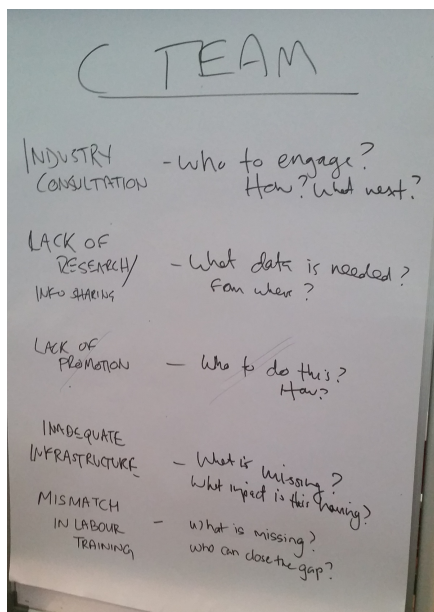 C TEAM
INDUSTRY CONSULTATION - Who to engage?
How? What next?
LACK OF RESEARCH/ INFO SHARING - What data is needed?
From where?
LACK OF PROMOTION - Who to do this?
How?
INADEQUATE INFRASTRUCTURE - What is missing?
What impact is this having?
MISMATCH IN LABOUR TRAINING - What is missing?
who can close the gap?